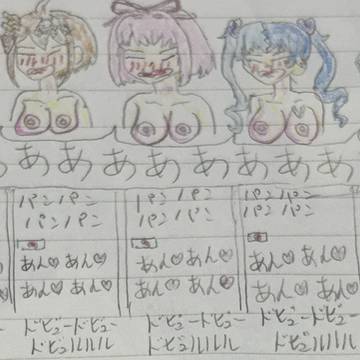 ああああああああ
パンパン
パンパン
あん♡あん♡
あん♡あん♡
ドビュードビュー
ドビュルルル
パンパン
パンパン
あん♡あん♡
あん♡あん♡
ドビュードビュー
ドビュルルル
パンパン
パンパン
あん♡あん♡
あん♡あん♡
ドビュードビュー
ドビュルルル